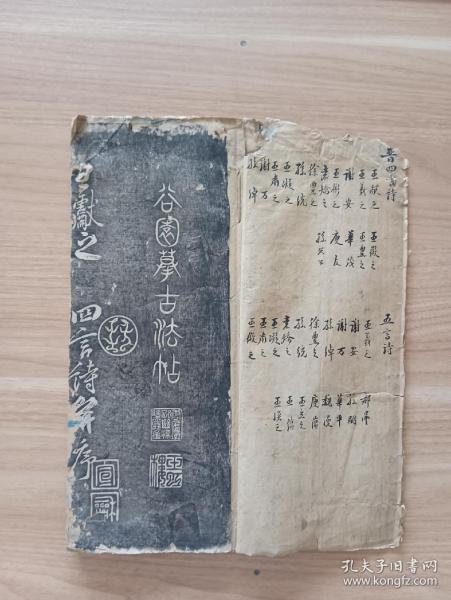 晉四言詩
王献之
王羲之
谢安
王彬之
袁嶠之
徐豊之
孫統
王凝之
王肅之
谢万
孫綽
王徽之
王豊之
華茂
庾友
五言詩
王羲之
谢安
谢万
孫綽
徐豊之
孫統
王凝之
王肅之
王徽之
郗曇
孫嗣
華平
魏滂
庾蘊
王玄之
王渙之
谷園摹古法帖
王獻之 四言詩并序
孔夫子旧书网
www.kongfz.com